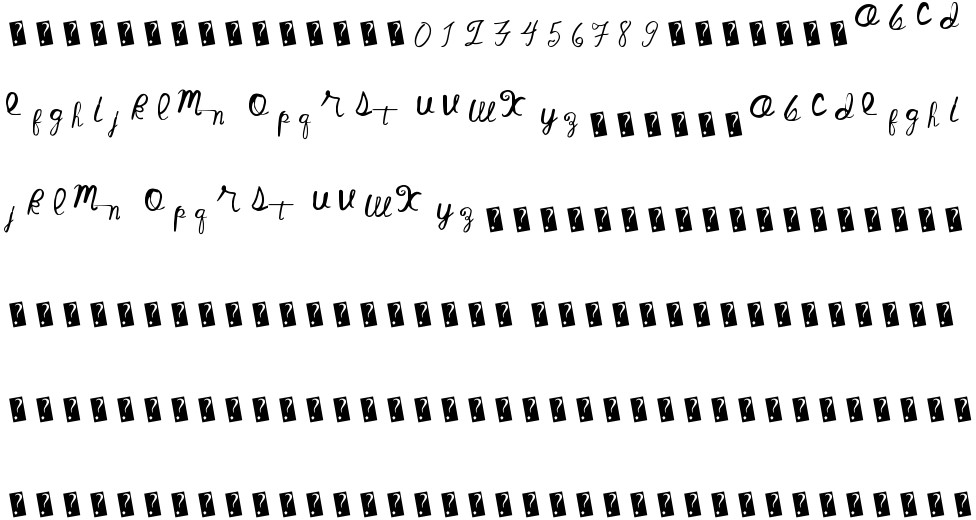 0 1 2 3 4 5 6 7 8 9 a b c d
e f g h i j k l m n o p q r s t u v w x y z a b c d e f g h i
j k l m n o p q r s t u v w x y z